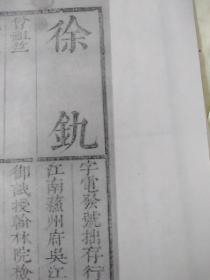 徐釚
字電發號拙存行
江南蘇州府吳江
曾祖
御試授翰林院檢